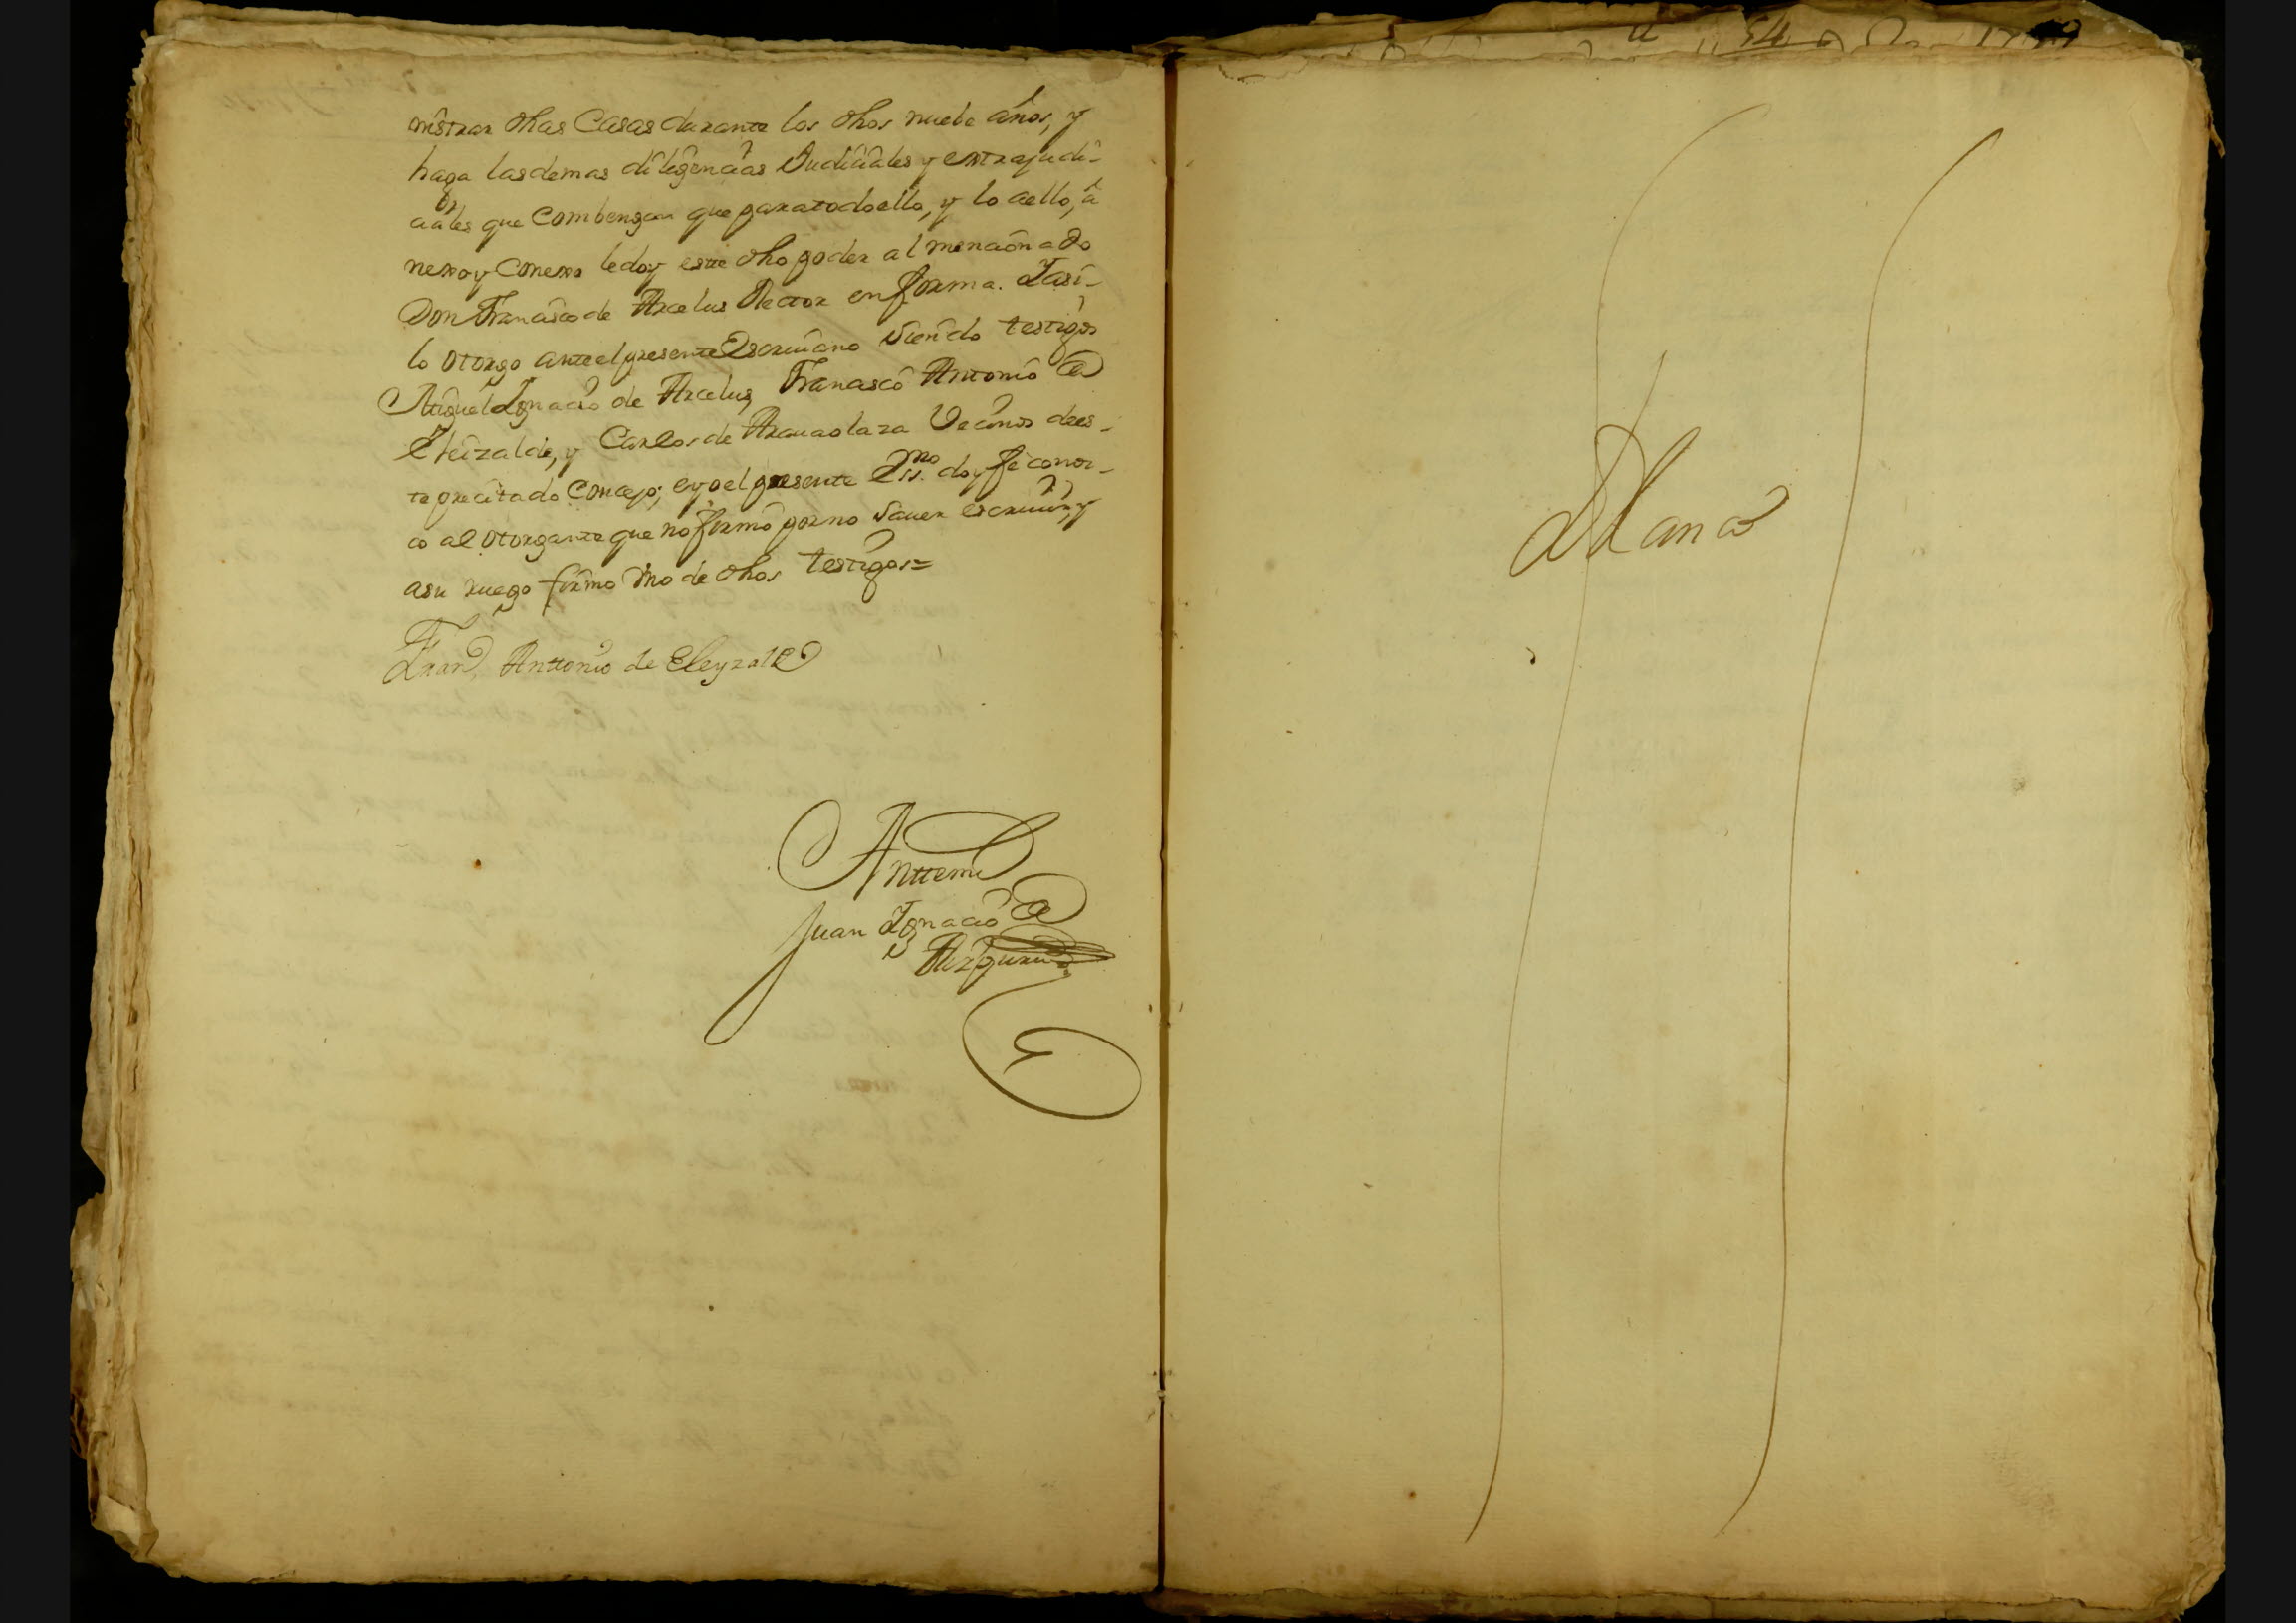 nistrar dhas Casas durante los dhos nuebe años, y
haga las demas diligencias Judiciales y extrajudi-
ciales que combengan que para todo ello, y lo a ello, a
nexo y conexo le doy este dho poder al mencionado
Don Francisco de Arcelus Rector en forma. Y asi-
lo otorgo ante el presente Escriuano siendo testigos
Miguel Ignacio de Arcelus, Francisco Antonio de
Eleizalde, y Carlos de Arauaolaza Vecinos de es-
te precitado Concejo; e yo el presente Essno. doy fe conoz-
co al otorgante que no firmó por no sauer escriuir, y
a su ruego firmo vno de dhos testigos=
Franco. Anttonio de Eleyzalde
Anttemi
Juan Ignacio de
Aizpuru
Blanco